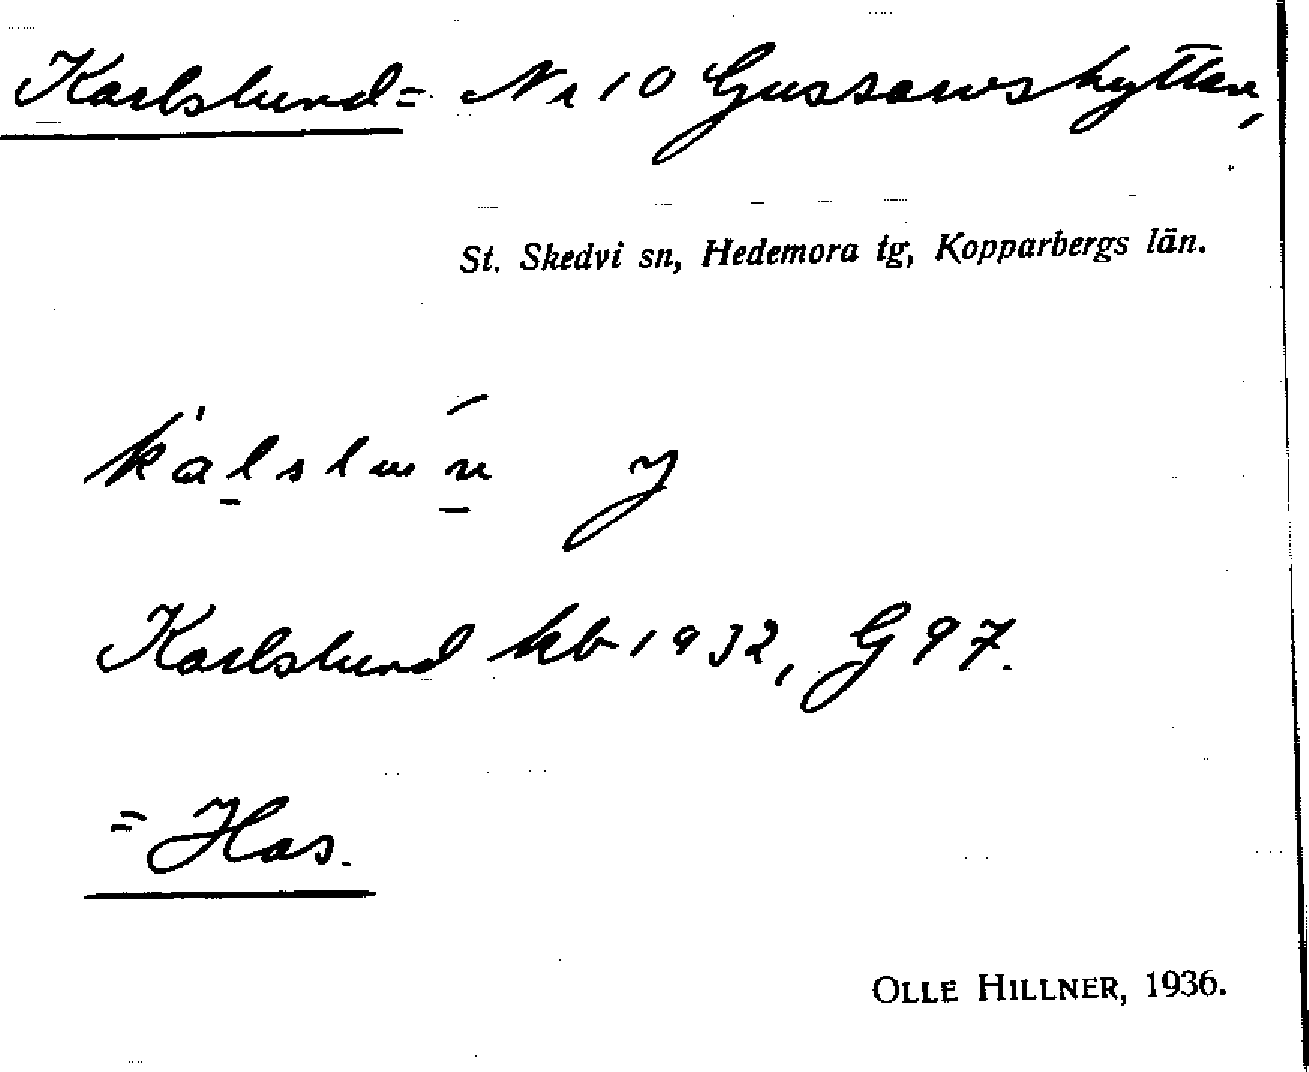 Karlslund = Nr 10 Gussarvshyttan,
St. Skedvi sn, Hedemora tg, Kopparbergs län.
Karlslund kb 1932, G 97.
= Has.
OLLE HILLNER, 1936.